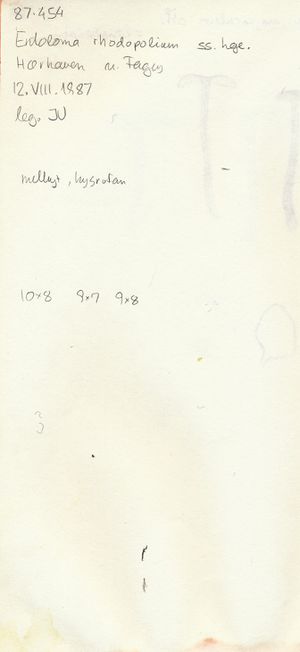 87-454
Entoloma rhodopolium ss. lge.
Hoorhaven u. Fagus
12.VIII.1987
leg. JV
melløgt, hygrofan
10×8 9×7 9×8